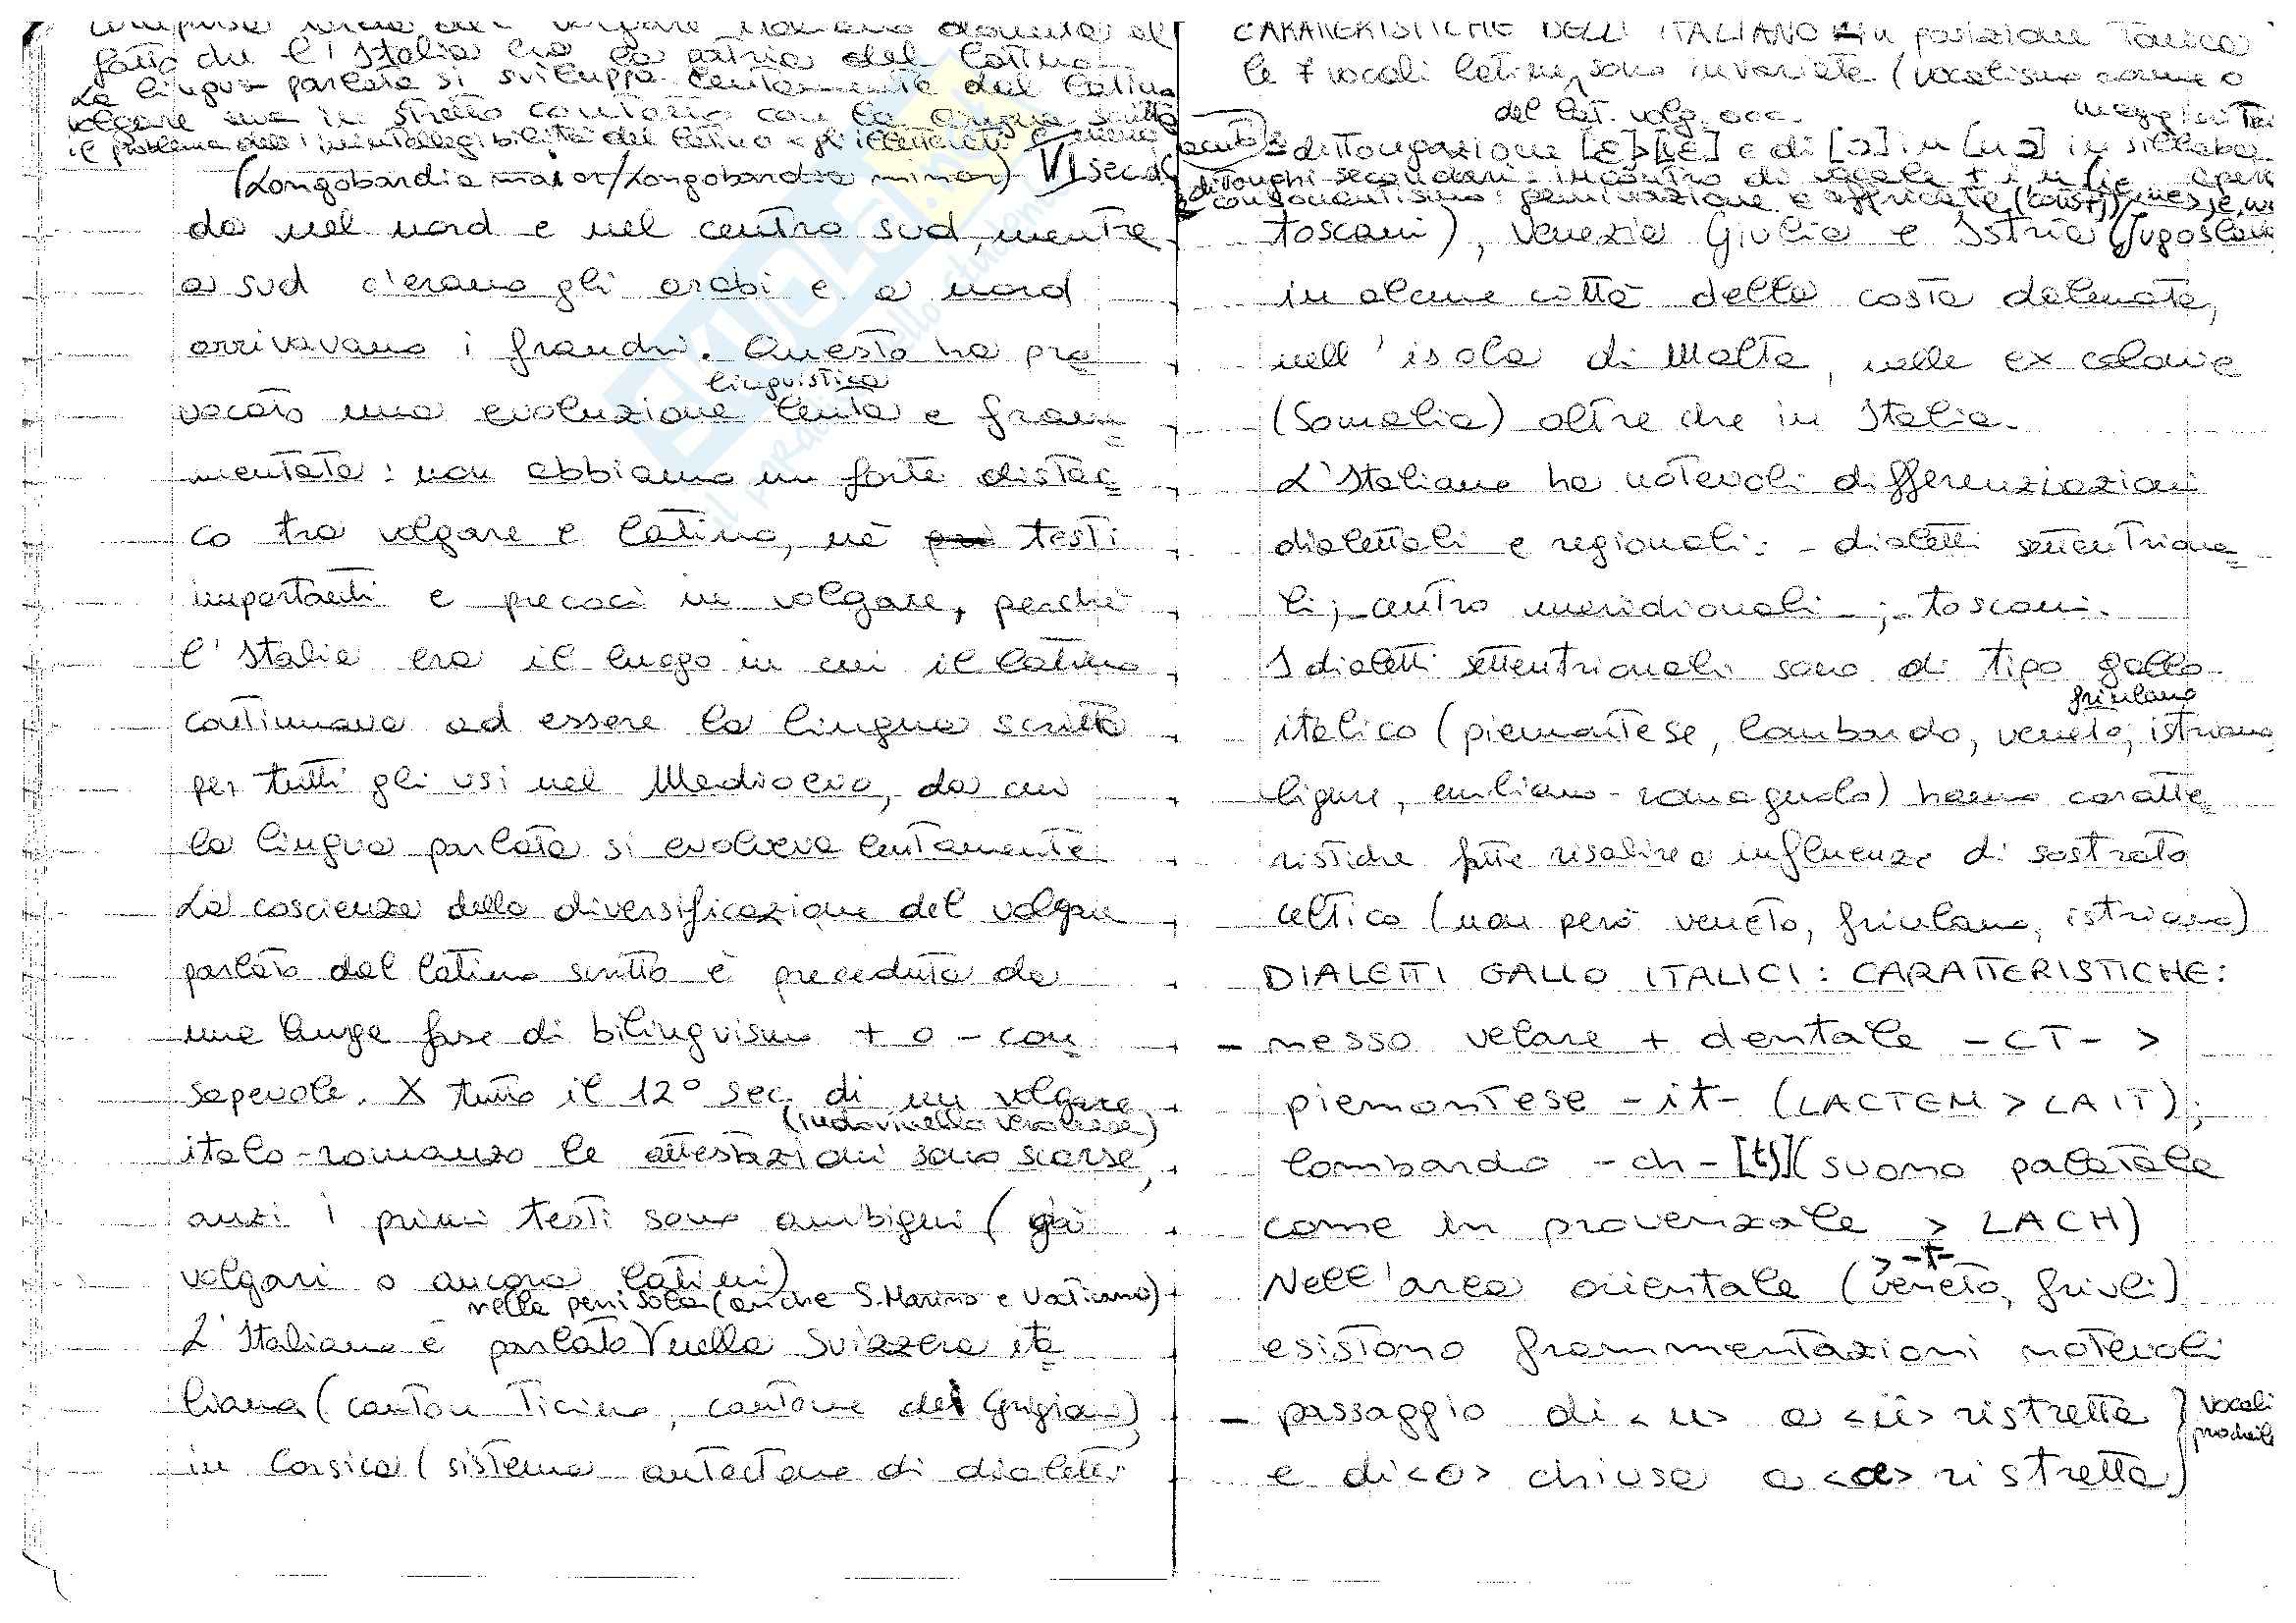 fatto che l'Italia era la patria del latino
La lingua parlata si sviluppa lentamente dal latino
volgare ma in stretto contatto con la lingua scritta
il problema dell'inintellegibilità del latino
(Longobardia maior/Longobardia minor) VI secolo
do nel nord e nel centro sud, mentre
a sud c'erano gli arabi e a nord
arrivavano i franchi. Questo ha pro
linguistica
vocato una evoluzione lenta e fram
mentata: non abbiamo un forte distac
co tra volgare e latino, nè testi
importanti e precoci in volgare, perchè
l'Italia era il luogo in cui il latino
continuava ad essere la lingua scritta
per tutti gli usi nel Medioevo, da cui
la lingua parlata si evolveva lentamente
La coscienza della diversificazione del volgare
parlato dal latino scritto è preceduta da
una lunga fase di bilinguismo + o - con
sapevole. X tutto il 12° sec. di un volgare
(indovinello veronese)
italo-romanzo le attestazioni sono scarse,
anzi i primi testi sono ambigui (già
volgari o ancora latini)
nella penisola (anche S. Marino e Vaticano)
L'Italiano è parlato V nella Svizzera ita
liana (canton Ticino, cantone dei Grigioni)
in Corsica (sistema autoctono di dialetti
CARATTERISTICHE DELL'ITALIANO in posizione tonica
le 7 vocali latine sono invariate (vocalismo
del lat. volg. occ.
dittongazione [ɛ]>[jɛ] e di [ɔ] in [uɔ] in sillaba
dittonghi secondari: incontro di vocale + i
consonantismo: geminazione e affricate
toscani), Venezia Giulia e Istria (Jugoslavia
in alcune città della costa dalmata,
nell'isola di Malta, nelle ex colonie
(Somalia) oltre che in Italia.
L'Italiano ha notevoli differenziazioni
dialettali e regionali: - dialetti settentriona
li; centro meridionali - ; - toscani.
I dialetti settentrionali sono di tipo gallo
friulano
italico (piemontese, lombardo, veneto, istriano,
ligure, emiliano-romagnolo) hanno caratte
ristiche fatte risalire a influenze di sostrato
celtico (non però veneto, friulano, istriano)
DIALETTI GALLO ITALICI: CARATTERISTICHE:
- nesso velare + dentale -CT- >
piemontese -it- (LACTEM > LAIT);
lombardo -ch- [tʃ] (suono palatale
come in provenzale > LACH)
> -t-
Nell'area orientale (veneto, friuli)
esistono frammentazioni notevoli
- passaggio di <u> a <ü> ristretta } vocali
e di <o> chiusa a <œ> ristretta